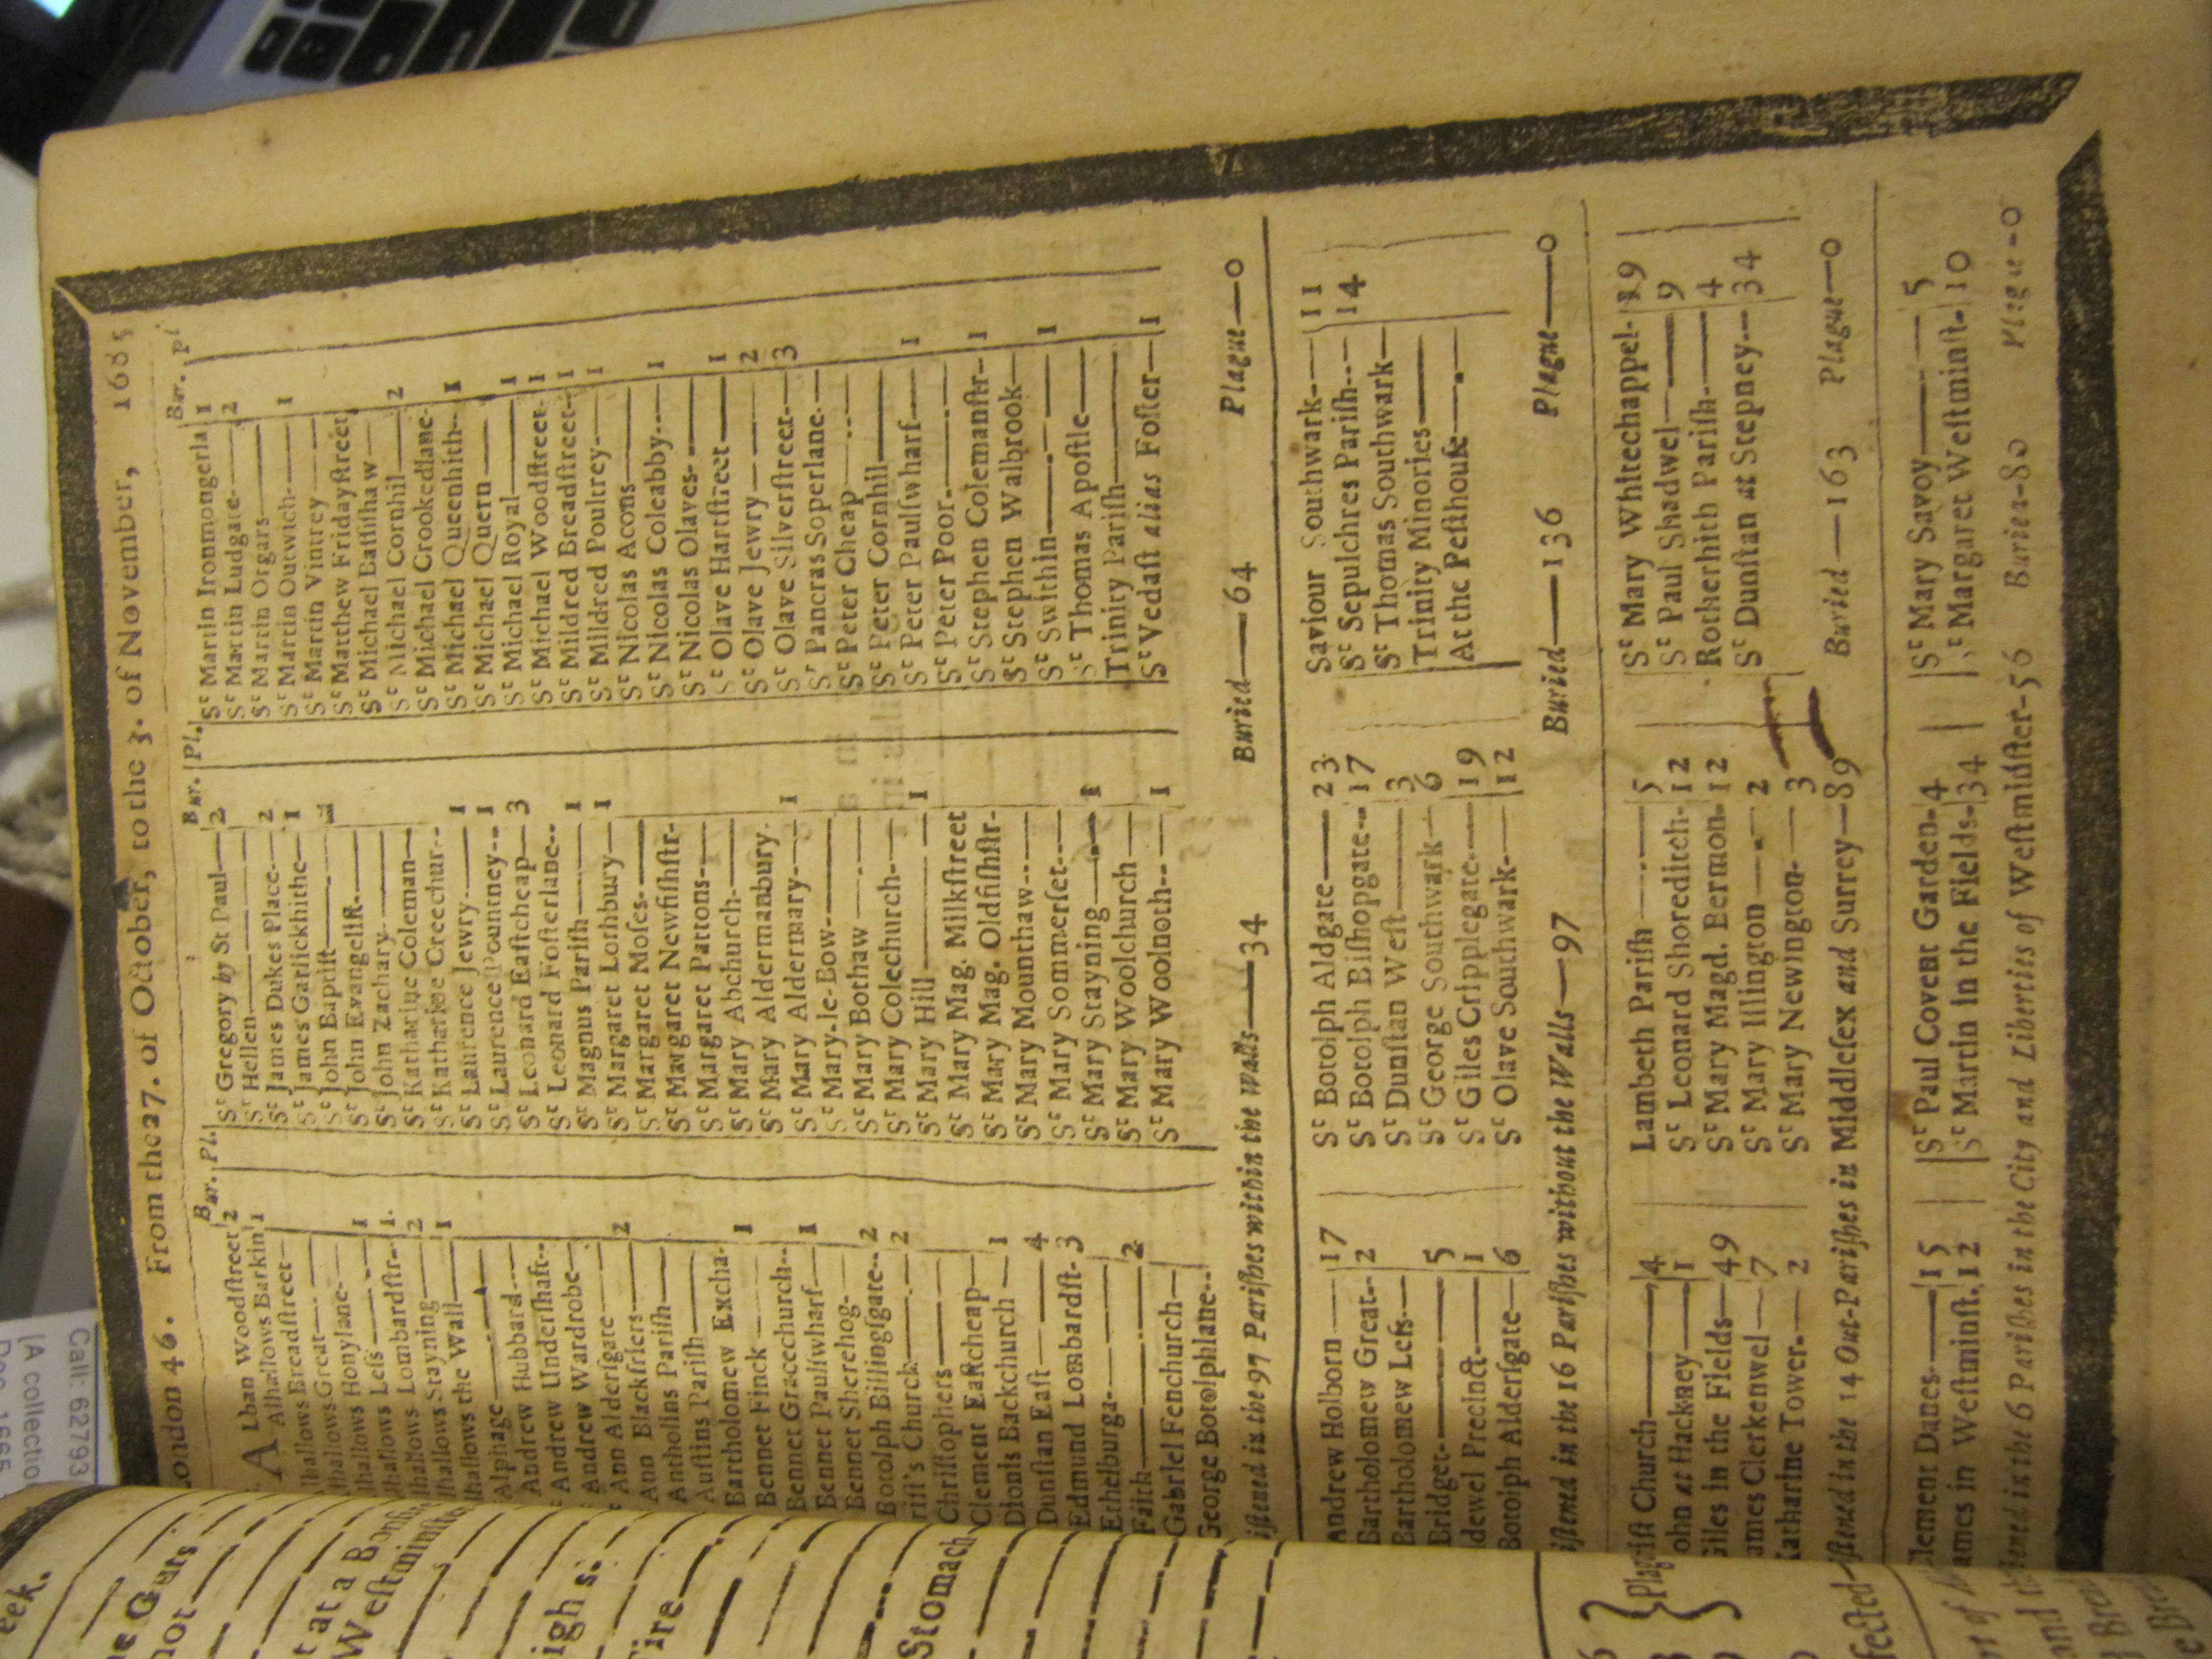 London 46. From the 27. of October, to the 3. of November, 1685
Bur. Pl.
A Lban Woodſtreet 2
Alhallows Barkin 1
lhallows Breadſtreet
lhallows Great
lhallows Honylane
lhallows Leſs 1
lhallows Lombardſtr 1
lhallows Stayning 2
lhallows the Wall 1
Alphage
Andrew Hubbard
Andrew Underſhaft
Andrew Wardrobe
Ann Alderſgate
Ann Blackfriers 2
Antholins Pariſh
Auſtins Pariſh
Bartholomew Excha.
Bennet Finck 1
Bennet Gracechurch
Bennet Paulſwharf 1
Bennet Sherehog
Botolph Billingſgate 2
riſt's Church 2
Chriſtophers
Clement Eaſtcheap
Dionis Backchurch 1
Dunſtan Eaſt 4
Edmund Lombardſt. 3
Ethelburga
Faith 2
Gabriel Fenchurch
George Botolphlane
Bur. Pl.
St Gregory by St Paul 2
St Hellen
St James Dukes Place 2
St James Garlickhithe 1
St John Baptiſt
St John Evangeliſt
St John Zachary
St Katharine Coleman
St Katharine Creechur
St Laurence Jewry 1
St Laurence Pountney 1
St Leonard Eaſtcheap 3
St Leonard Foſterlane
St Magnus Pariſh 1
St Margaret Lothbury 1
St Margaret Moſes
St Margaret Newfiſhſtr
St Margaret Pattons
St Mary Abchurch
St Mary Aldermanbury
St Mary Aldermary 1
St Mary-le-Bow
St Mary Bothaw
St Mary Colechurch
St Mary Hill 1
St Mary Mag. Milkſtreet
St Mary Mag. Oldfiſhſtr
St Mary Mounthaw
St Mary Sommerſet
St Mary Stayning 1
St Mary Woolchurch
St Mary Woolnoth 1
Bur. Pl.
St Martin Ironmongerla 1
St Martin Ludgate 2
St Martin Orgars
St Martin Outwich 1
St Martin Vintrey
St Matthew Fridayſtreet
St Michael Baſſiſhaw
St Michael Cornhil 2
St Michael Crookedlane
St Michael Queenhith 1
St Michael Quern
St Michael Royal 1
St Michael Woodſtreet 1
St Mildred Breadſtreet 1
St Mildred Poultrey 1
St Nicolas Acons
St Nicolas Coleabby 1
St Nicolas Olaves
St Olave Hartſtreet 1
St Olave Jewry 2
St Olave Silverſtreet 3
St Pancras Soperlane
St Peter Cheap
St Peter Cornhil
St Peter Paulſwharf 1
St Peter Poor
St Stephen Colemanſtr 1
St Stephen Walbrook
St Swithin 1
St Thomas Apoſtle
Trinity Pariſh
St Vedaſt alias Foſter 1
iſtened in the 97 Pariſhes within the Walls—34 Buried—64 Plague—0
Andrew Holborn 17
Bartholomew Great 2
Bartholomew Leſs
Bridget 5
idewel Precinct 1
Botolph Alderſgate 6
St Botolph Aldgate 23
St Botolph Biſhopgate 17
St Dunſtan Weſt 3
St George Southwark 6
St Giles Cripplegate 19
St Olave Southwark 12
Saviour Southwark 11
St Sepulchres Pariſh 14
St Thomas Southwark
Trinity Minories
At the Peſthouſe
iſtened in the 16 Pariſhes without the Walls—97 Buried—136 Plague—0
riſt Church 4
John at Hackney 1
Giles in the Fields 49
James Clerkenwel 7
Katharine Tower 2
Lambeth Pariſh 5
St Leonard Shoreditch 12
St Mary Magd. Bermon 12
St Mary Iſlington 2
St Mary Newington 3
St Mary Whitechappel 19
St Paul Shadwel 9
Rotherhith Pariſh 4
St Dunſtan at Stepney 34
iſtened in the 14 Out-Pariſhes in Middleſex and Surrey—89 Buried—163 Plague—0
lement Danes 15
ames in Weſtminſt. 12
St Paul Covent Garden 4
St Martin in the Fields 34
St Mary Savoy 5
St Margaret Weſtminſt 10
ſtened in the 6 Pariſhes in the City and Liberties of Weſtminſter-56 Buried-80 Plague-0
eek.
Guts
not
t at a
Weſtminſte
ighs.
Fire
Stomach
Plag
fected
Call: 62793
[A collectio